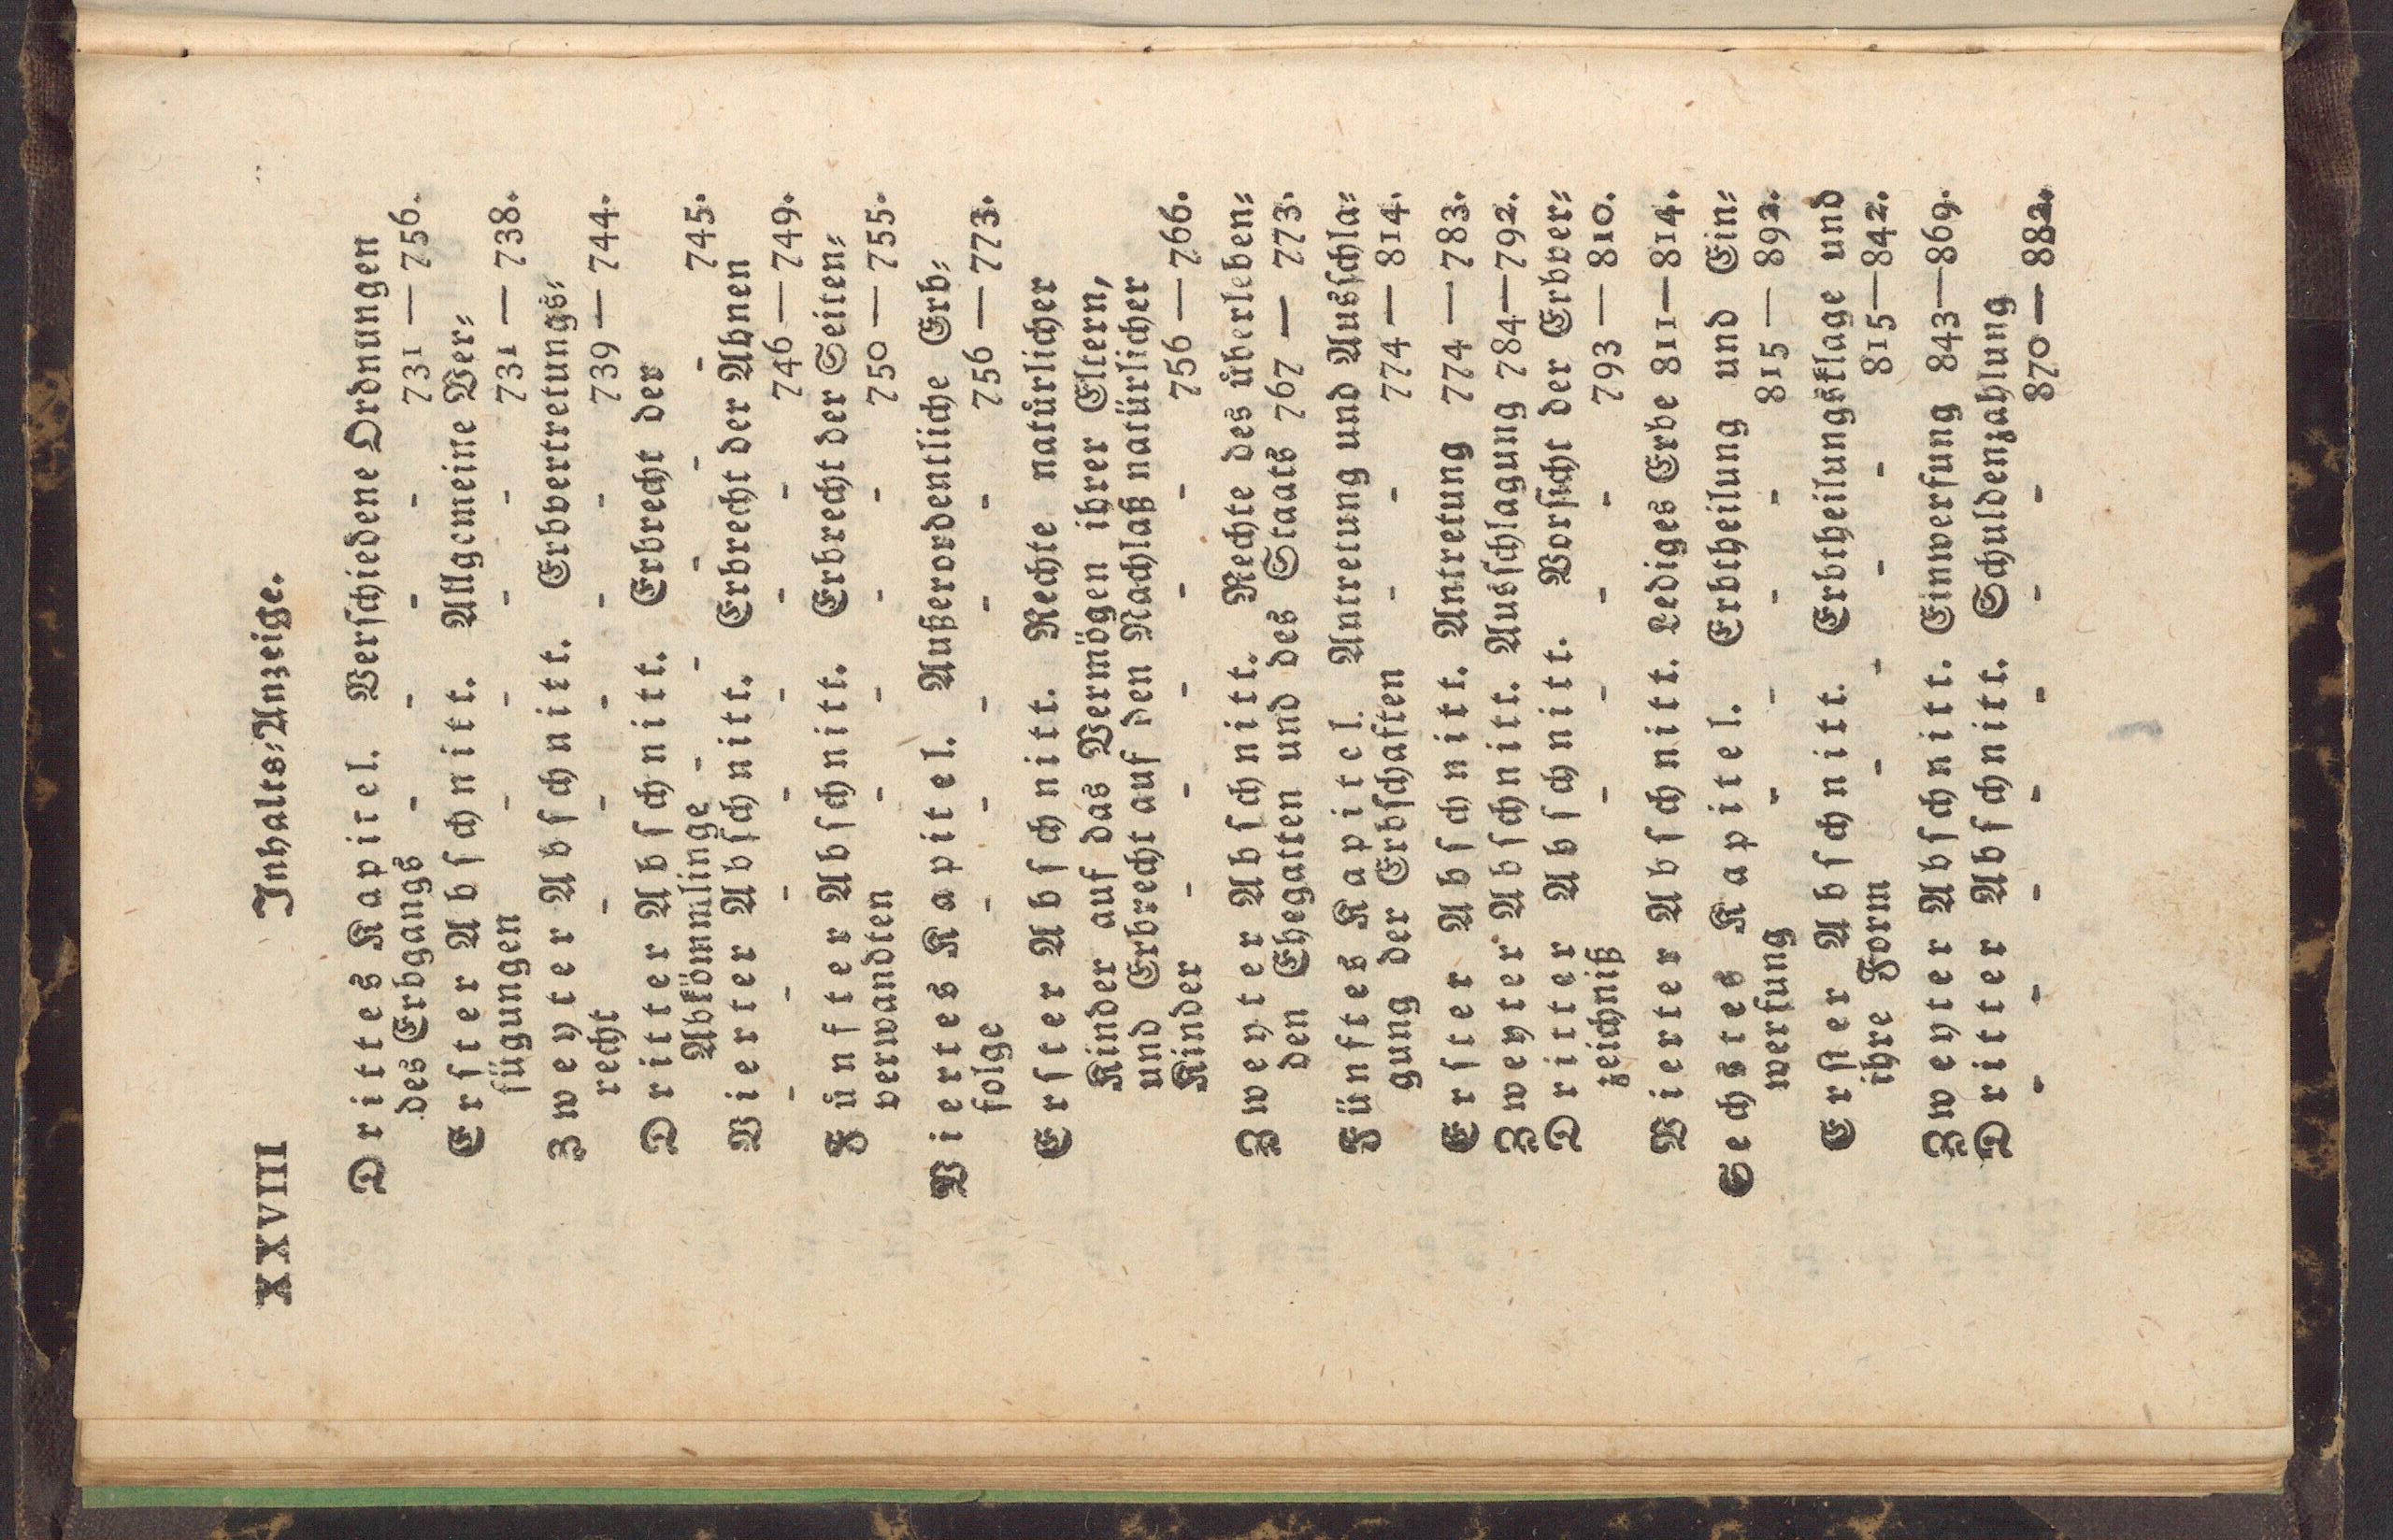 XXVIII Inhalts-Anzeige.
Drittes Kapitel. Verschiedene Ordnungen
des Erbgangs - - - - 731 — 756.
Erster Abschnitt. Allgemeine Ver-
fügungen - - - - 731 — 738.
Zweyter Abschnitt. Erbvertretungs-
recht - - - - - 739 — 744.
Dritter Abschnitt. Erbrecht der
Abkömmlinge - - - - - 745.
Vierter Abschnitt. Erbrecht der Ahnen
- - - - - - - 746 — 749.
Fünfter Abschnitt. Erbrecht der Seiten-
verwandten - - - - 750 — 755.
Viertes Kapitel. Außerordentliche Erb-
folge - - - - - 756 — 773.
Erster Abschnitt. Rechte natürlicher
Kinder auf das Vermögen ihrer Eltern,
und Erbrecht auf den Nachlaß natürlicher
Kinder - - - - - 756 — 766.
Zweyter Abschnitt. Rechte des überleben-
den Ehegatten und des Staats 767 — 773.
Fünftes Kapitel. Antretung und Ausschla-
gung der Erbschaften - - 774 — 814.
Erster Abschnitt. Antretung 774 — 783.
Zweyter Abschnitt. Ausschlagung 784—792.
Dritter Abschnitt. Vorsicht der Erbver-
zeichniß - - - - 793 — 810.
Vierter Abschnitt. Lediges Erbe 811—814.
Sechstes Kapitel. Erbtheilung und Ein-
werfung - - - - 815 — 892.
Erster Abschnitt. Erbtheilungsklage und
ihre Form - - - - 815—842.
Zweyter Abschnitt. Einwerfung 843—869.
Dritter Abschnitt. Schuldenzahlung
- - - - - - - 870 — 882.